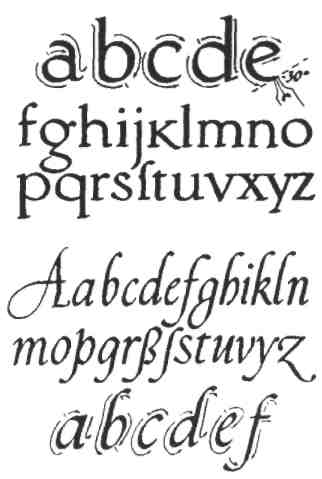 abcde 30°
fghijklmno
pqrsſtuvxyz
Aabcdefghikln
mopqrßſstuvyz
abcdef